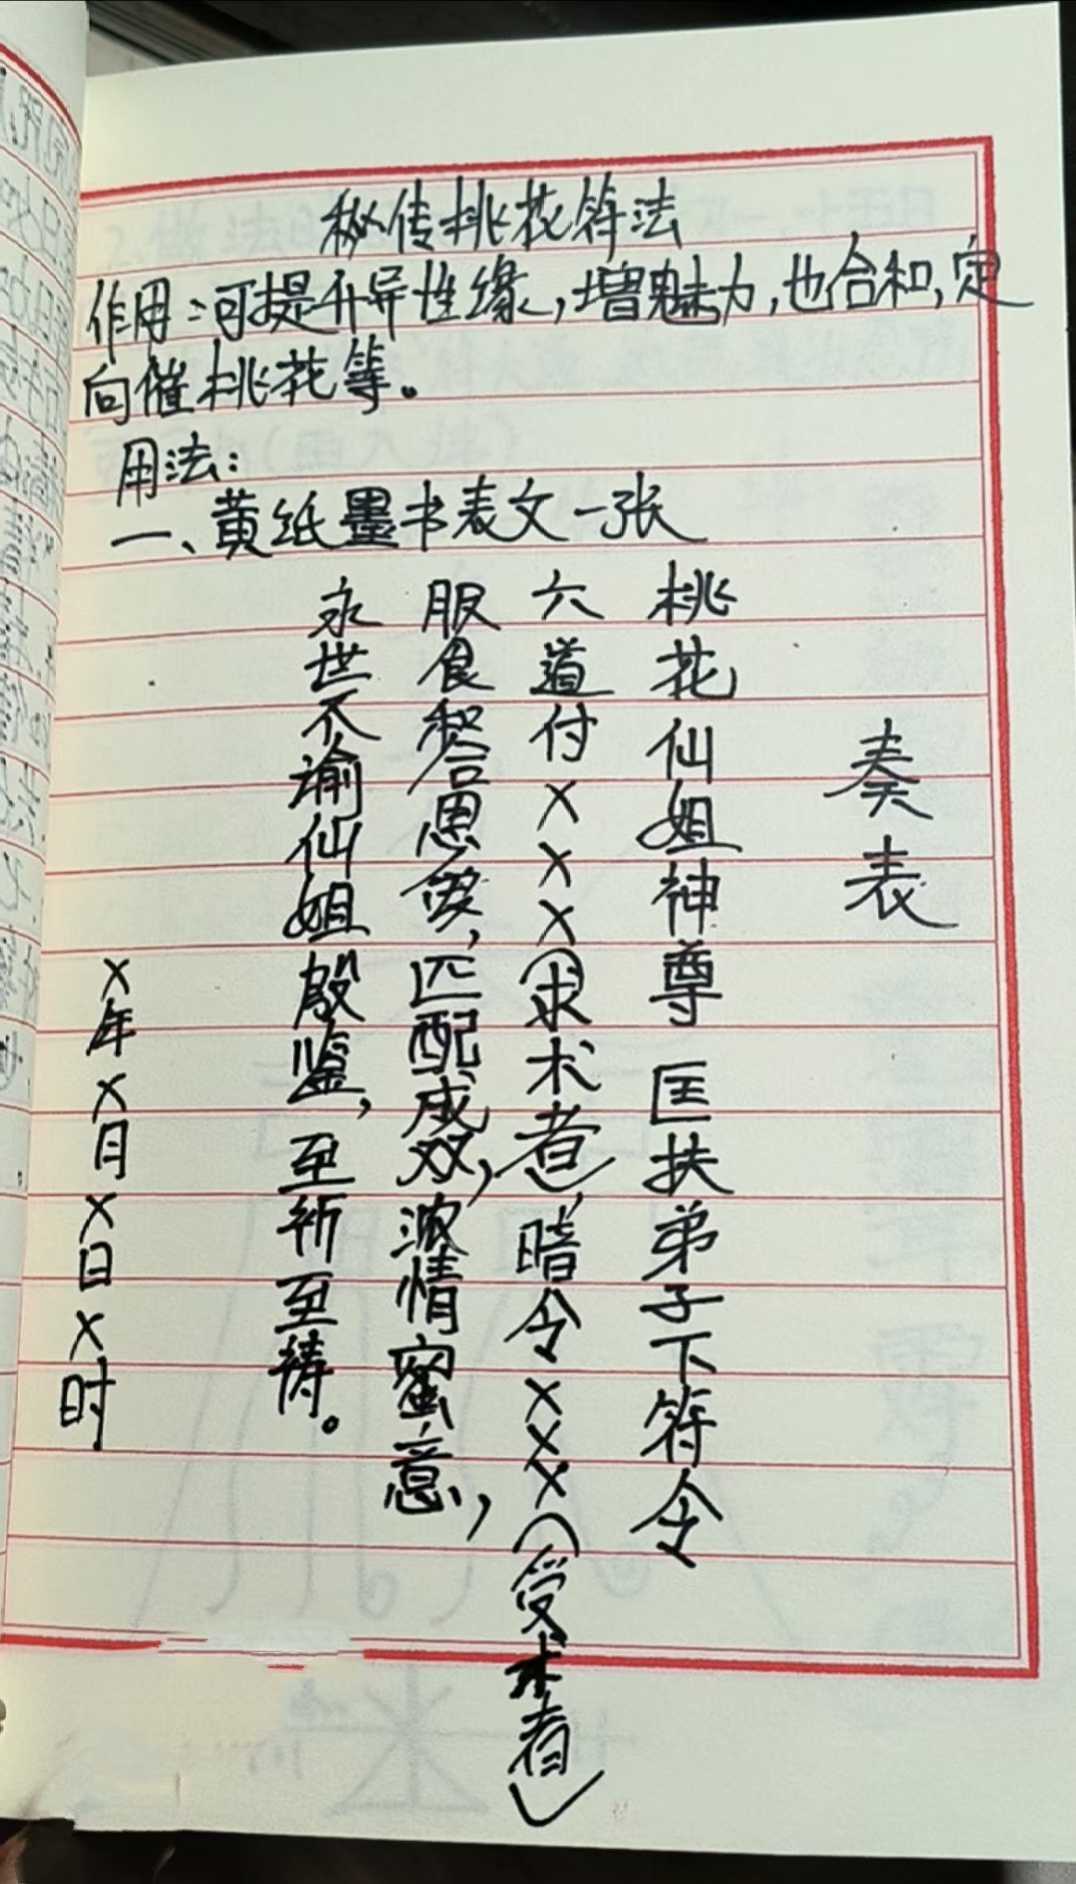 秘传桃花符法
作用:可提升异性缘,增魅力,也合和,定
向催桃花等。
用法:
一、黄纸墨书表文一张
奏表
桃花仙姐神尊 匡扶弟子下符令
六道付×××(求术者),暗令×××(受术者)
服食和合思爱,匹配成双,浓情蜜意,
永世不谕仙姐殷鉴,至祈至祷。
×年×月×日×时